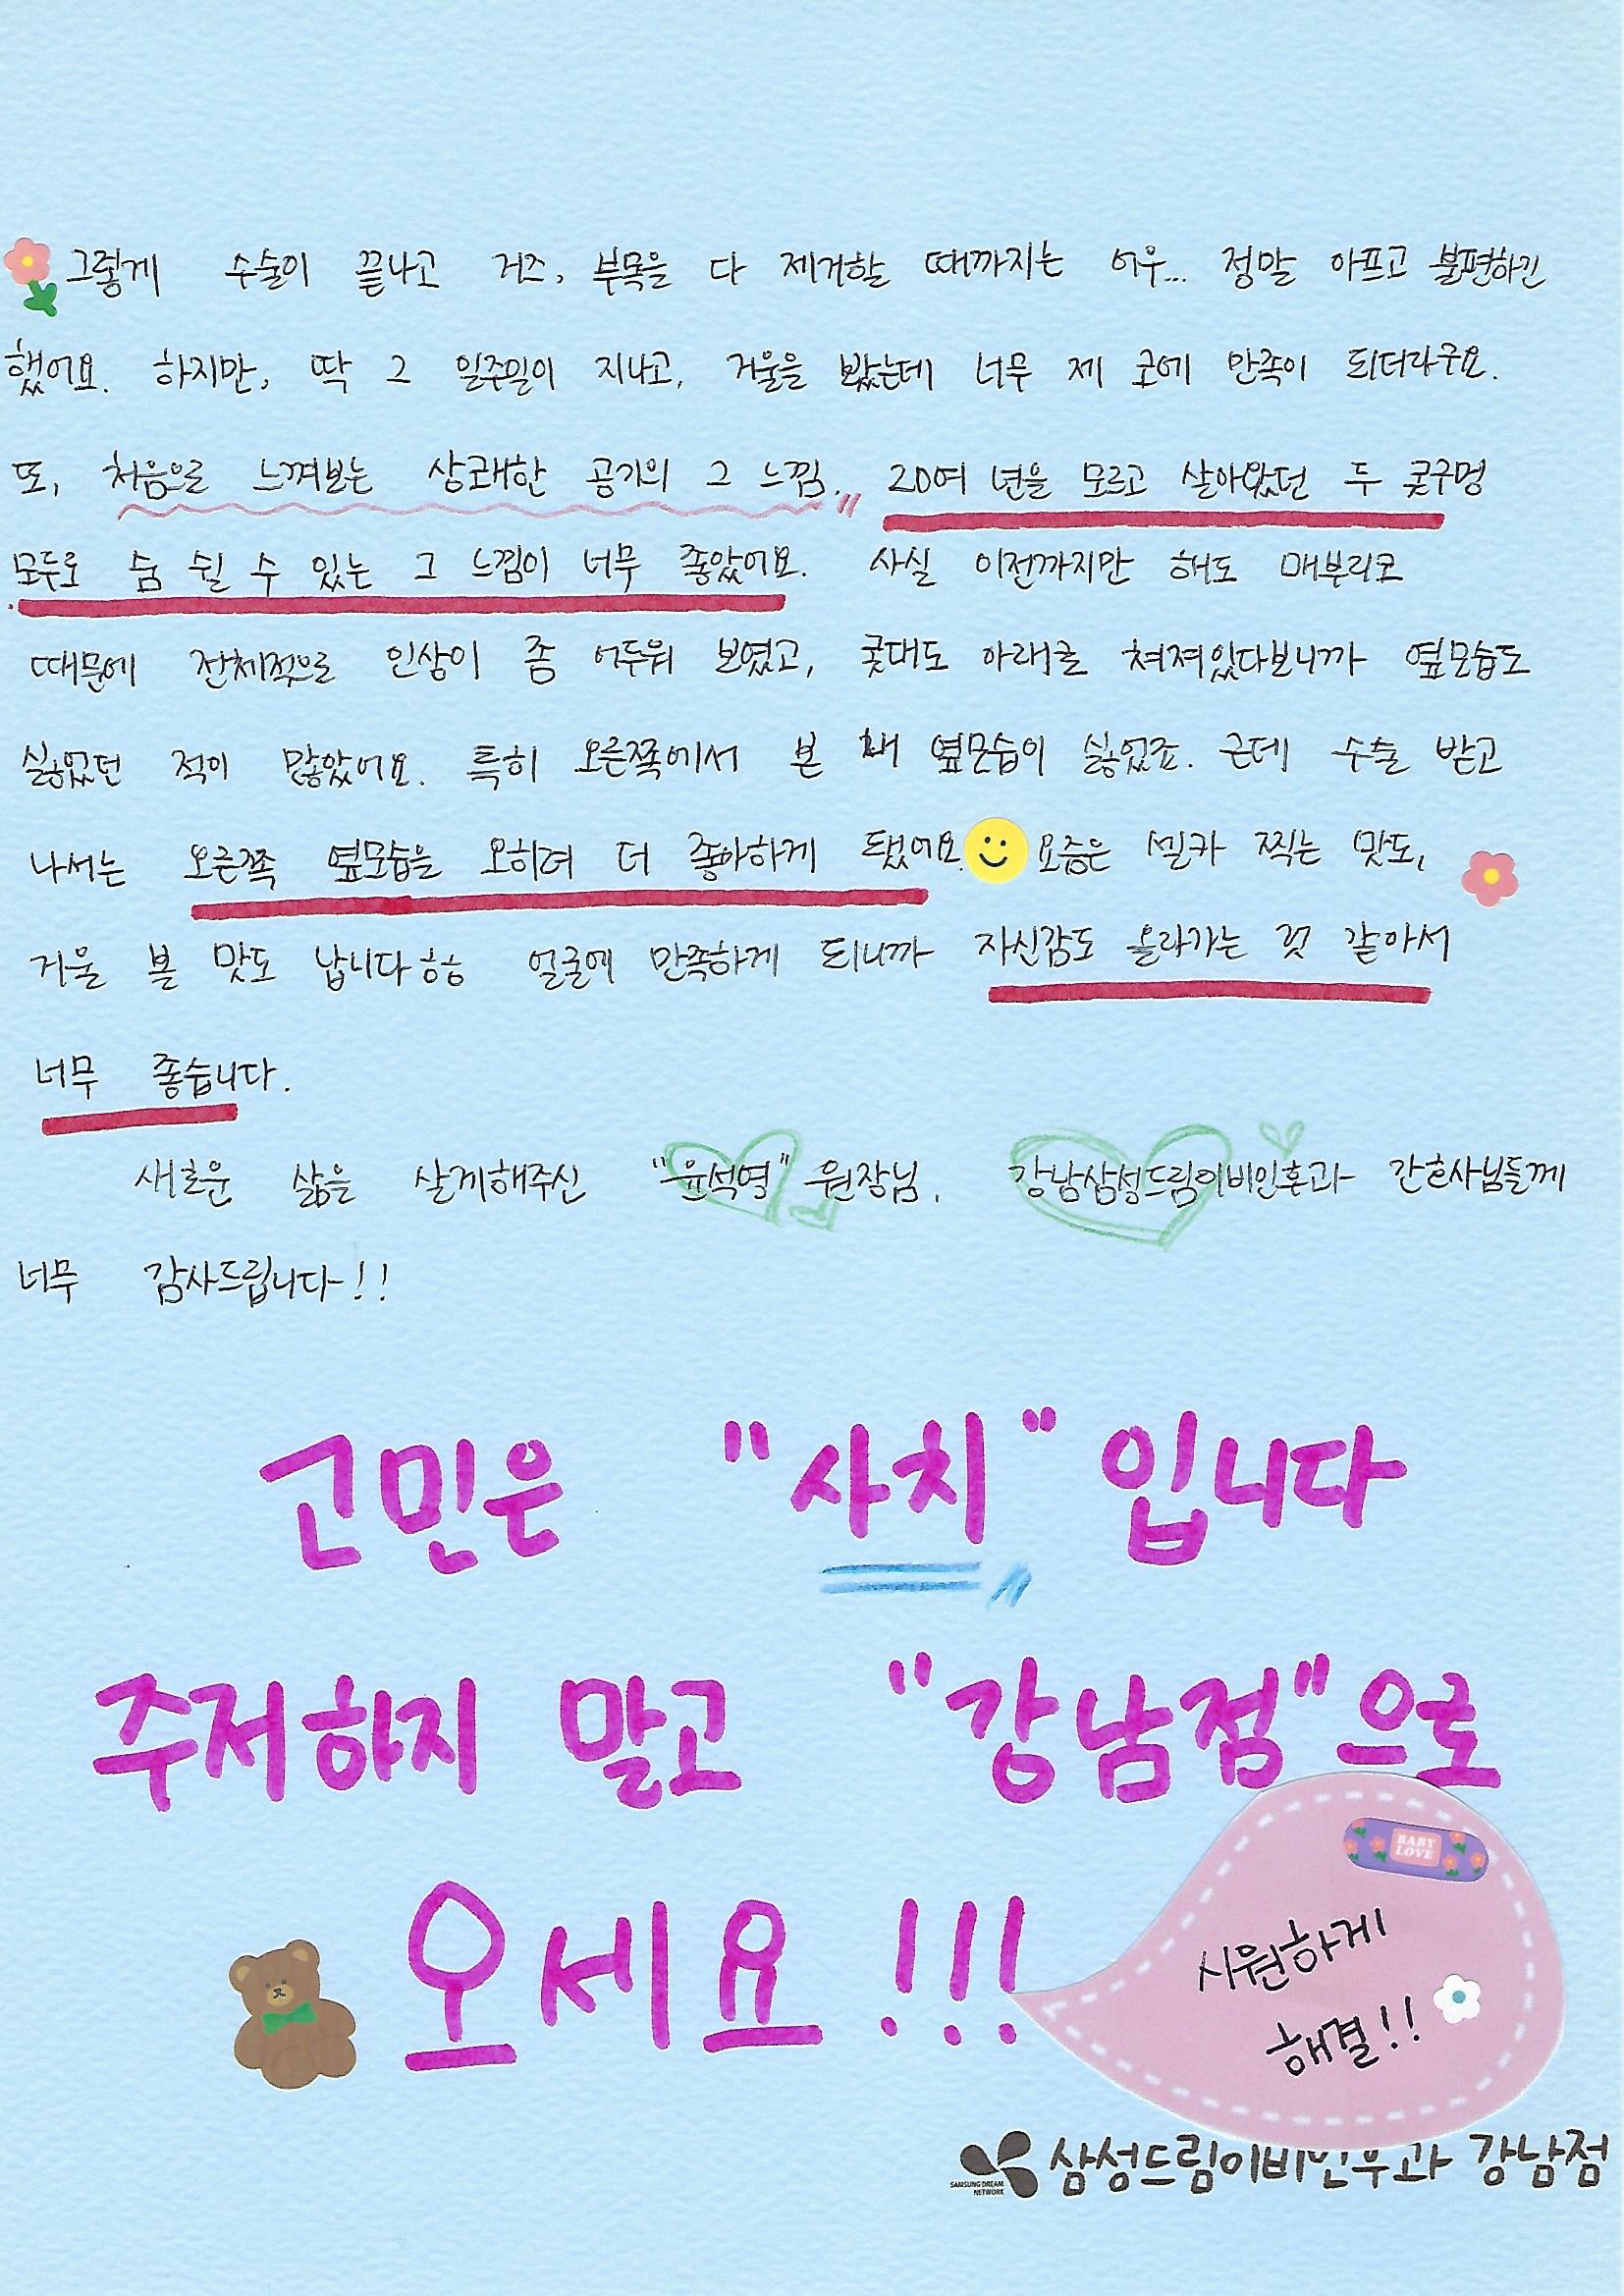 그렇게 수술이 끝나고 거즈, 부목을 다 제거할 때까지는 어우... 정말 아프고 불편하긴
했어요. 하지만, 딱 그 일주일이 지나고, 거울을 봤는데 너무 제 코에 만족이 되더라구요.
또, 처음으로 느껴보는 상쾌한 공기의 그 느낌,, 20여 년을 모르고 살아왔던 두 콧구멍
모두로 숨 쉴 수 있는 그 느낌이 너무 좋았어요. 사실 이전까지만 해도 매부리코
때문에 전체적으로 인상이 좀 어두워 보였고, 콧대도 아래로 쳐져있다보니까 옆모습도
싫었던 적이 많았어요. 특히 오른쪽에서 본 제 옆모습이 싫었죠. 근데 수술 받고
나서는 오른쪽 옆모습을 오히려 더 좋아하게 됐어요. 요즘은 셀카 찍는 맛도,
거울 본 맛도 납니다ㅎㅎ 얼굴에 만족하게 되니까 자신감도 올라가는 것 같아서
너무 좋습니다.
새로운 삶을 살게해주신 "윤석영" 원장님, 강남삼성드림이비인후과 간호사님들께
너무 감사드립니다!!
고민은 "사치"입니다
주저하지 말고 "강남점"으로
오세요!!!
BABY
LOVE
시원하게
해결!!
SAMSUNG DREAM
NETWORK
삼성드림이비인후과 강남점